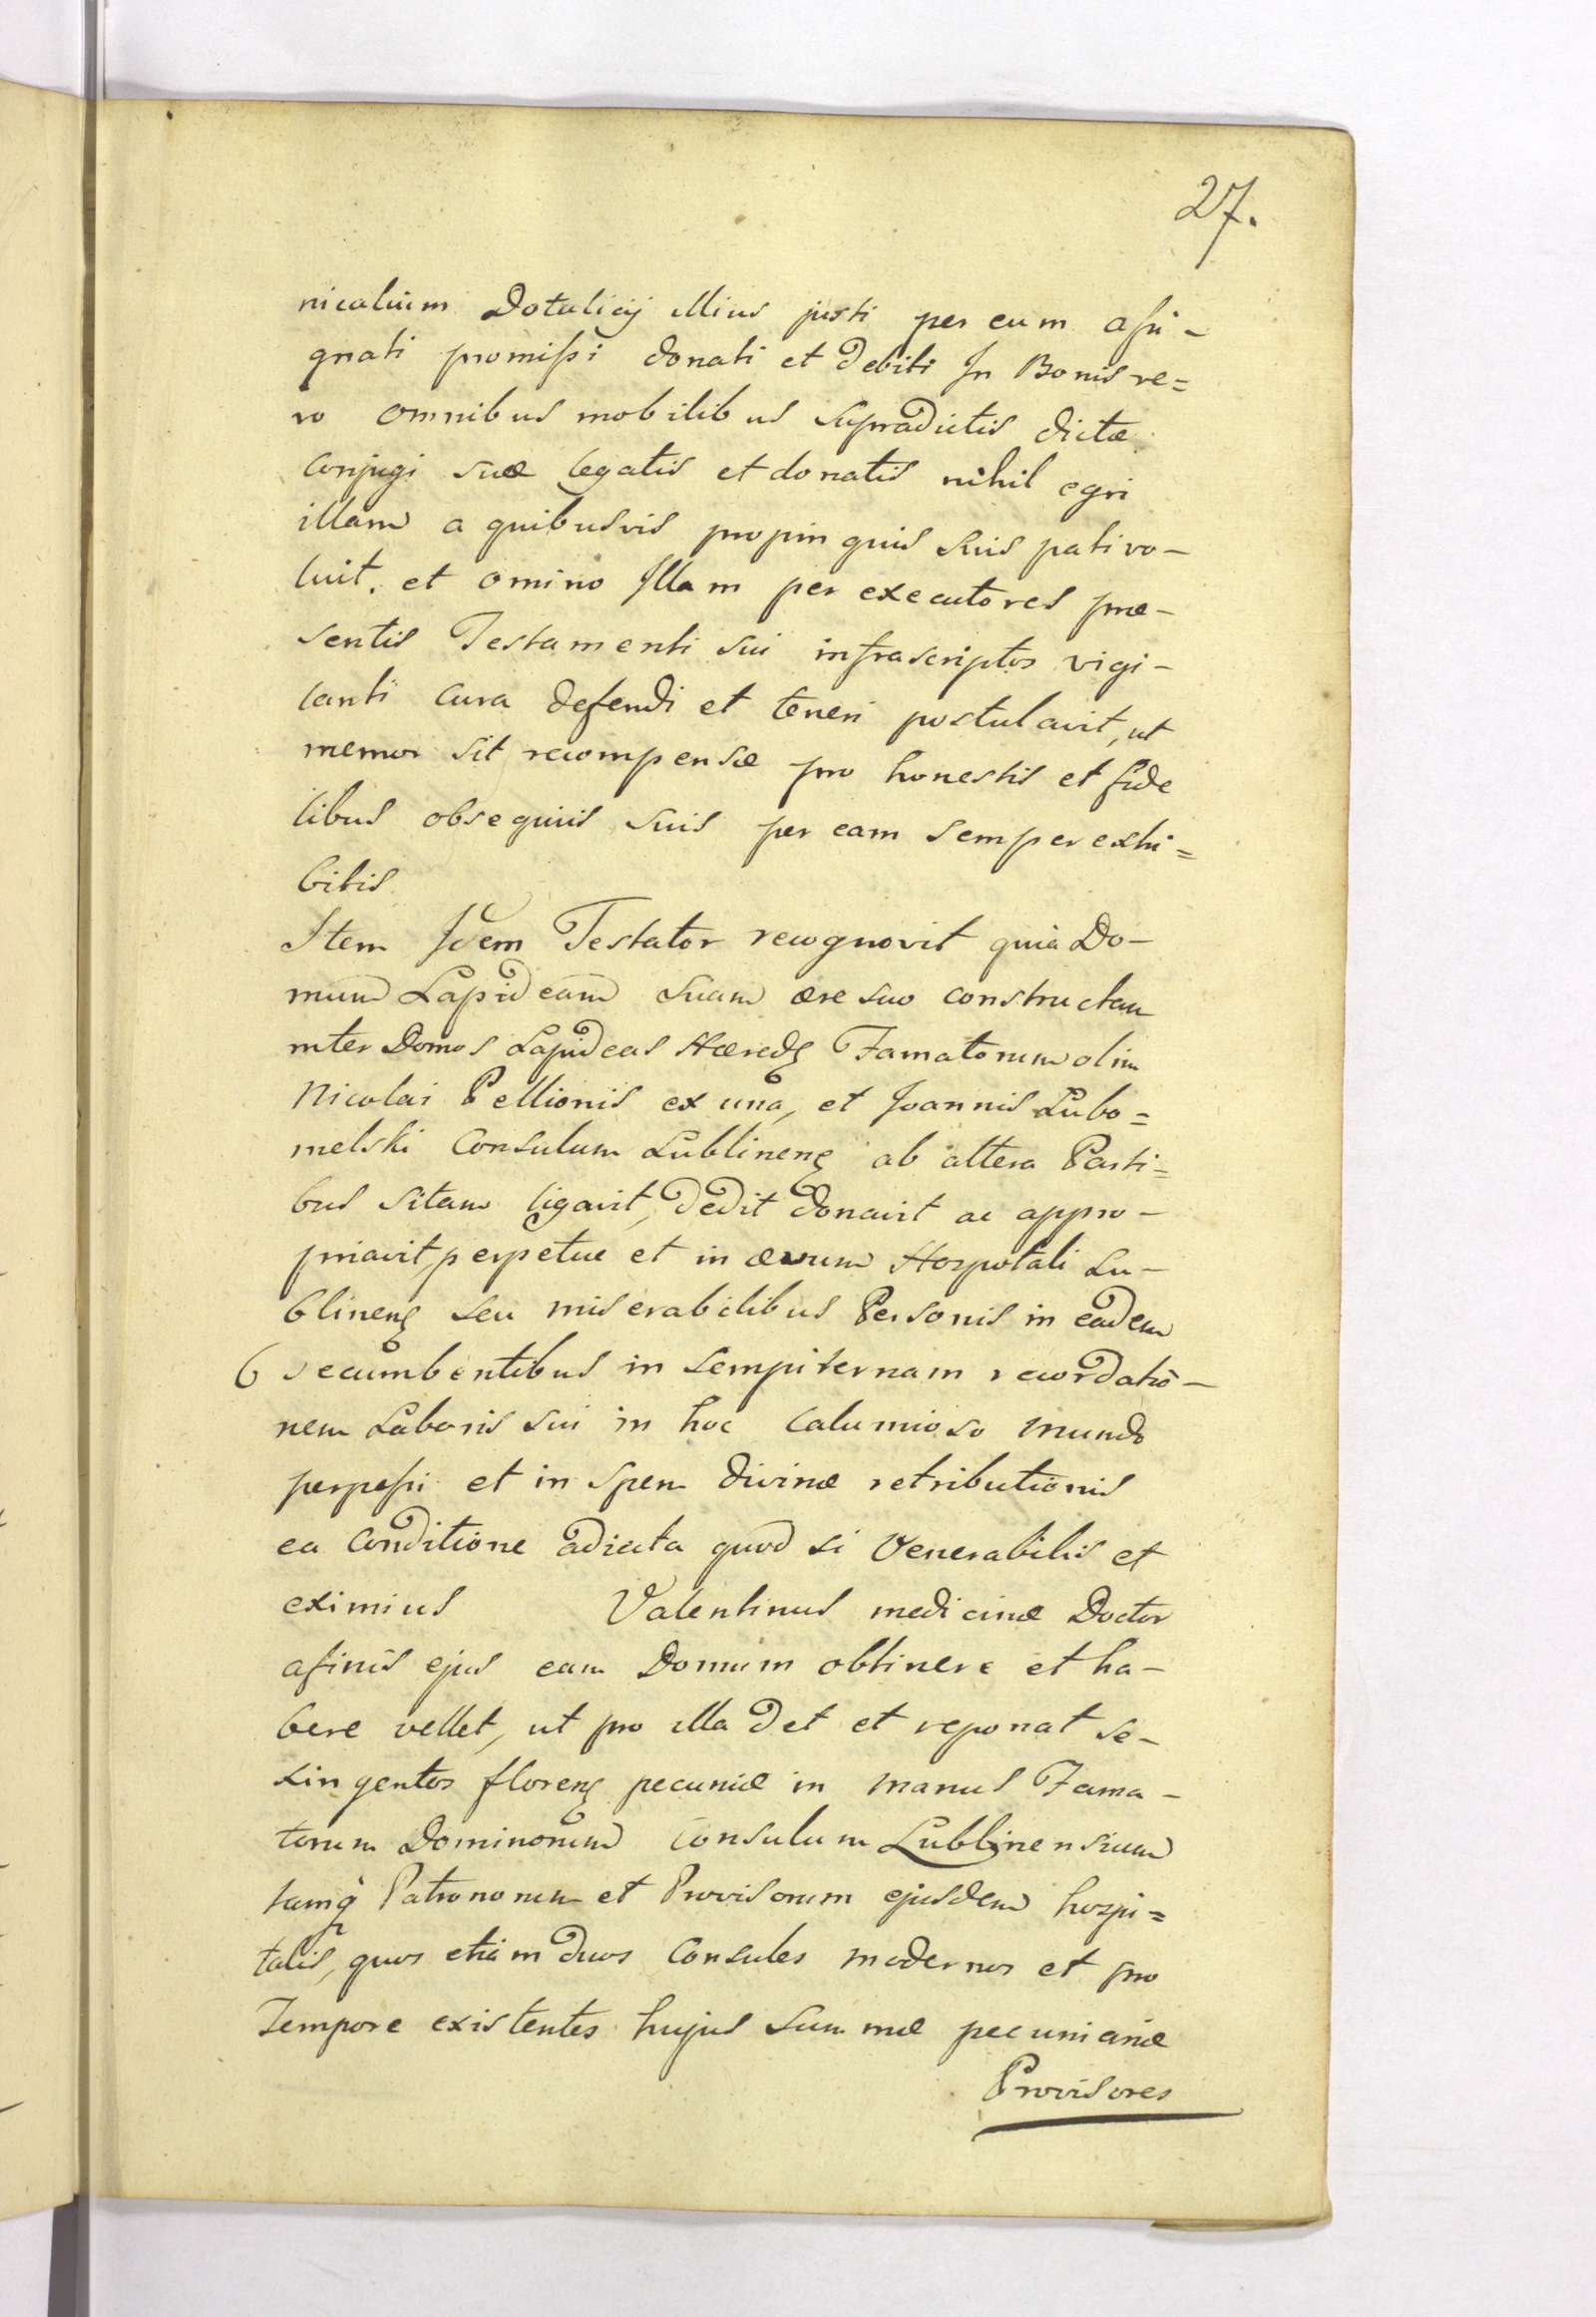 27.
nicalium Dotalicij illius justi per eum assi-
gnati promissi donati et debiti In Bonis ve=
ro omnibus mobilibus supradictis dictæ
Conjugi suæ legatis et donatis nihil egri
illam a quibusvis propinquis suis pati vo-
luit. et omino Illam per executores præ-
sentis Testamenti sui infrascriptos vigi-
lanti cura defendi et teneri postulavit, ut
memor sit recompensæ pro honestis et fide
libus obsequiis suis per eam semper exhi=
bitis
Item Idem Testator recognovit quia Do-
mum Lapideam suam ære suo constructam
inter Domos Lapideas Hæredg Famatorum olim
Nicolai Pellionis ex una, et Joannis Lubo=
melski Consulum Lublineng ab altera Parti=
bus sitam ligavit, dedit donavit ac appro-
priavit perpetue et in ævum Hospotali Lu-
blineng seu miserabilibus Personis in eadem
6 decumbentibus in sempiternam recordatio-
nem Laboris sui in hoc Calumioso Mundo
perpessi et in spem divinæ retributionis
ea Conditione adiecta quod si Venerabilis et
eximius Valentinus medicinæ Doctor
afinis ejus eam Domum obtinere et ha-
bere vellet, ut pro illa det et reponat se-
xingentos floreng pecuniæ in manus Fama-
torum Dominorum Consulum Lublinensium
tamq̃ Patronorum et Provisorum ejusdem hospi=
talis, quos etiam duos Consules modernos et pro
Tempore existentes hujus summæ pecuniariæ
Provisores